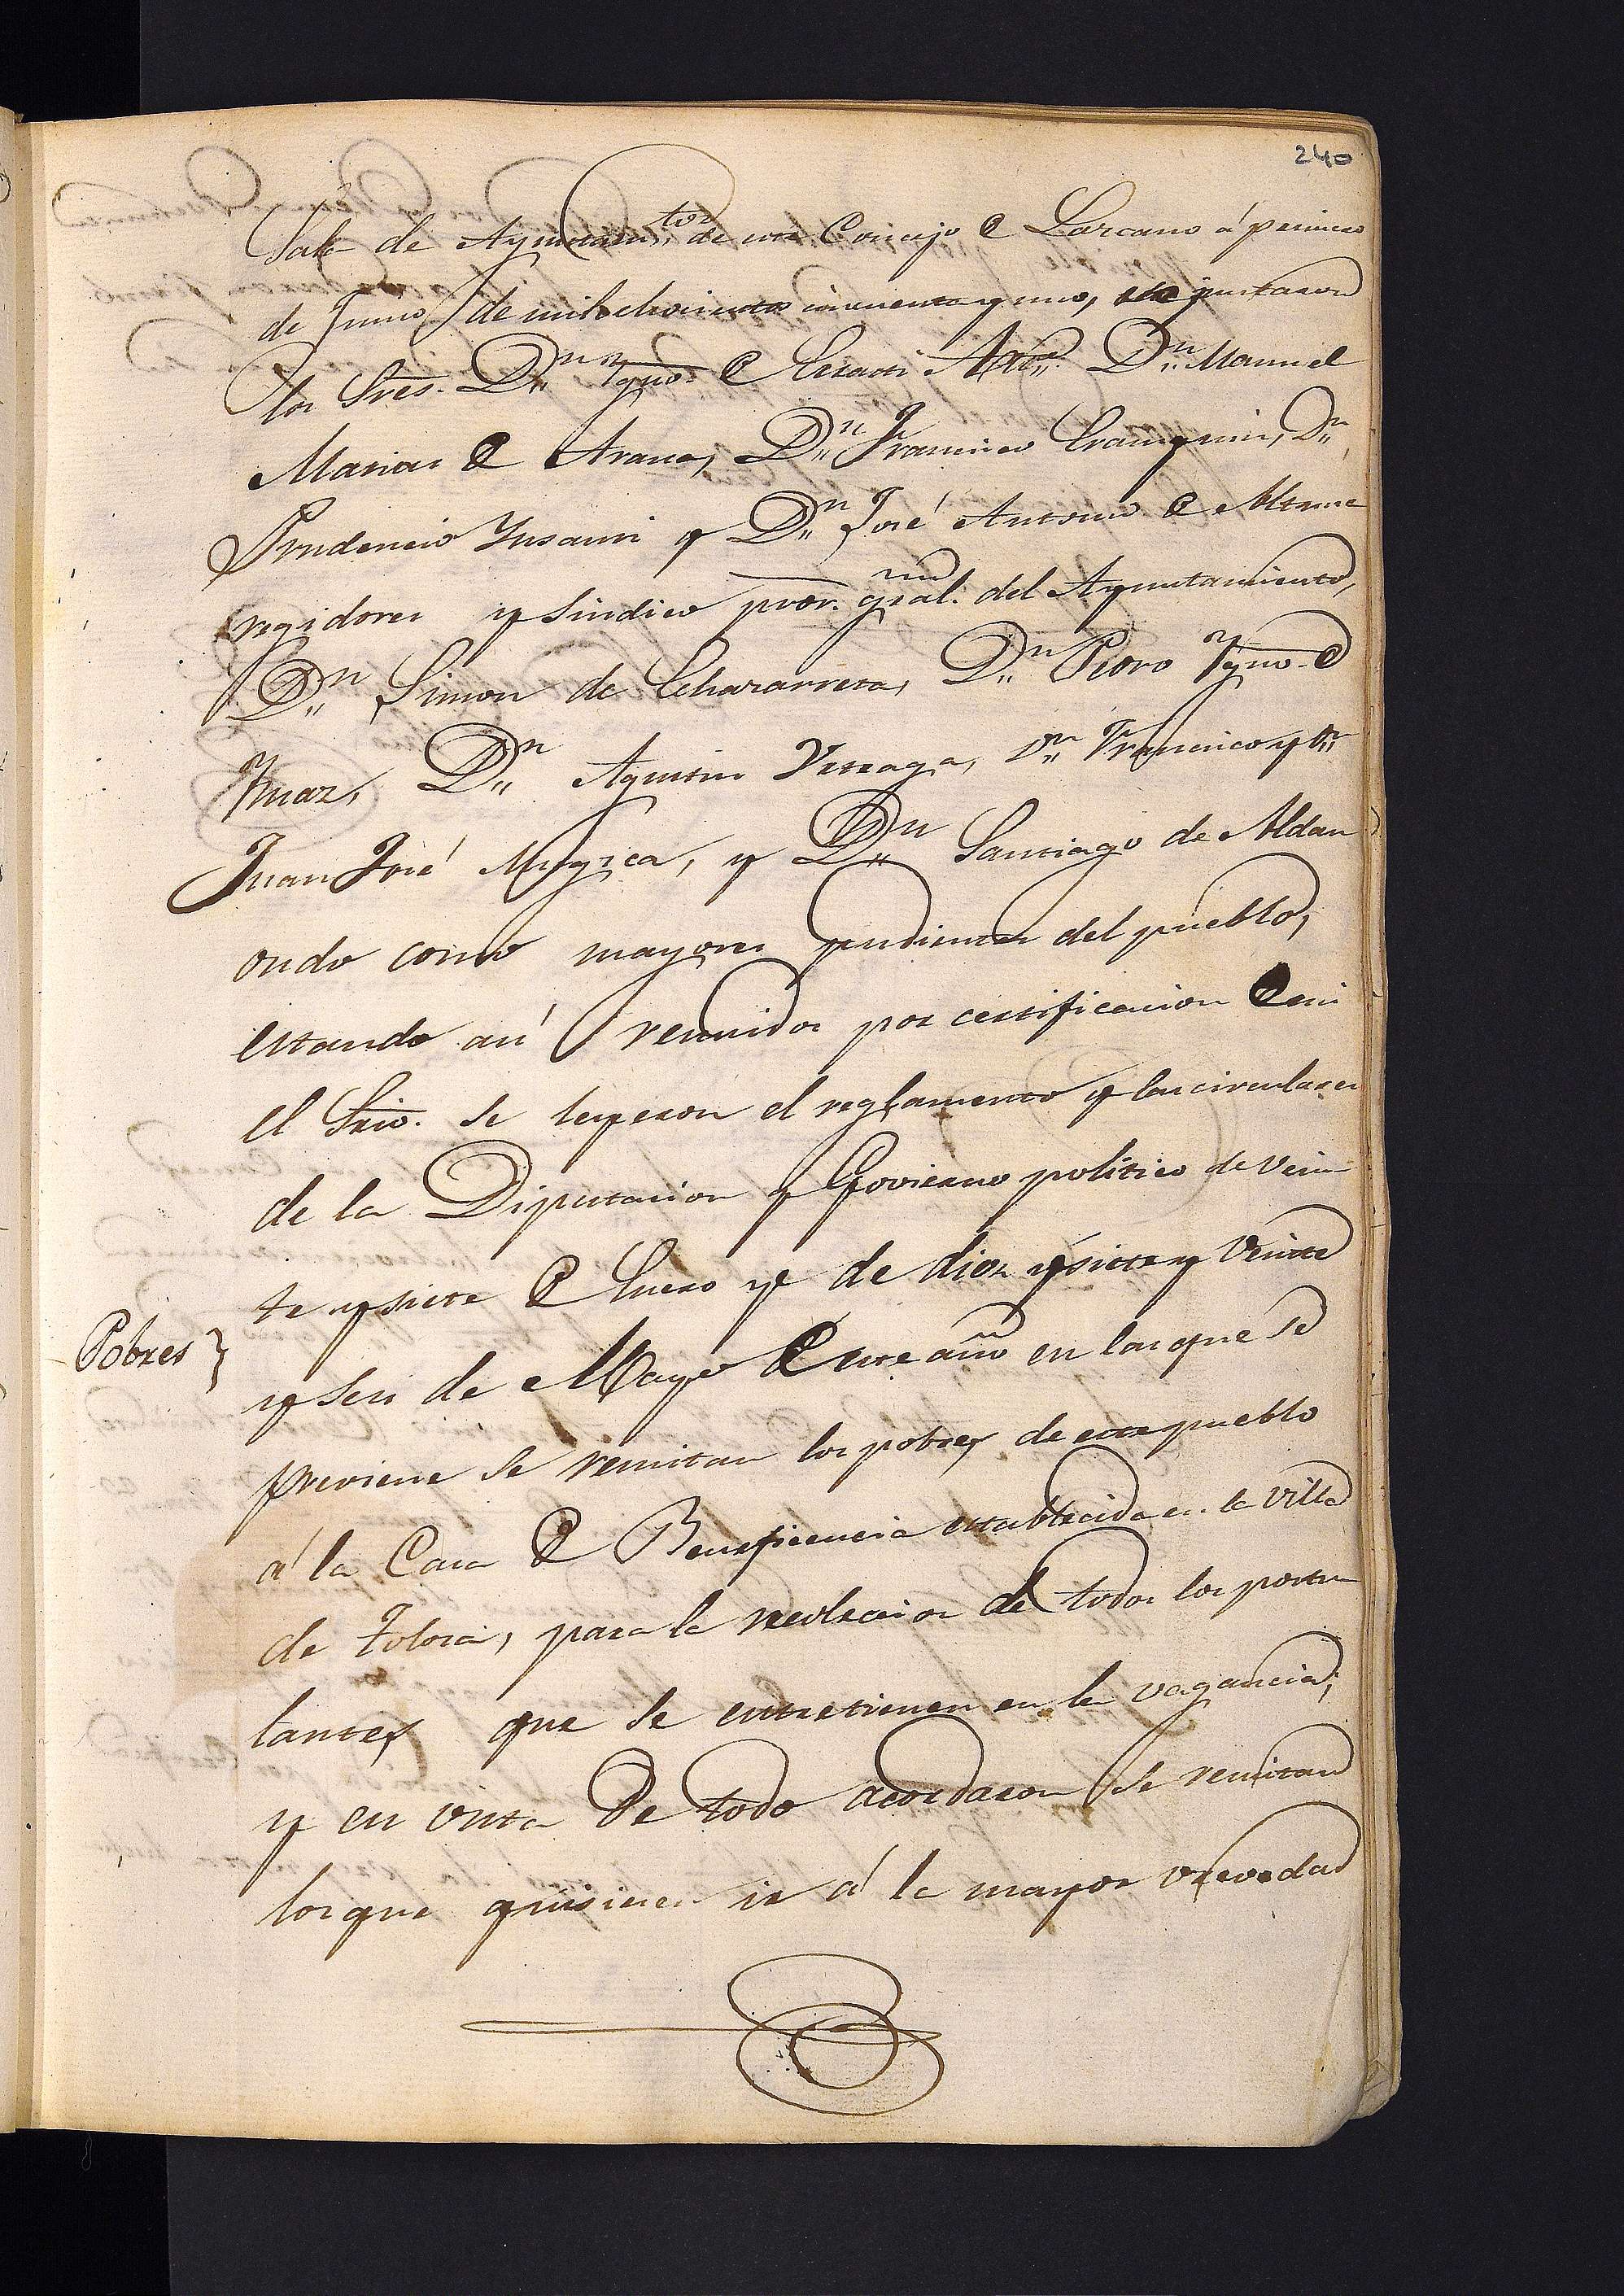 240
Sala de Ayuntam.tos de este Concejo @ Lazcano á primero
de Junio de mil ochocientos cincuenta y uno, se juntaron
los Sres. D.n Ygno. @ Alc.e D.n Manuel
Marias @ Arana, D.n Francisco D.n
Prudencio Ynsausti y D.n José Antonio @ Altuna
regidores y sindico pror. gral. del Ayuntamiento,
D.n Simon de Echazarreta, D.n Pedro Ygno. @
Ymaz, D.n Agustin Urteaga, D.n Francisco y D.n
Juan José Mugica, y D.n Santiago de Aldan
ondo como mayores pudientes del pueblo,
estando asi reunidos por certificacion @ mi
el Srio. se leyeron el reglamento y las circulares
de la Diputacion y Govierno politico de vein
te y siete @ Enero y de diez y siete y veinte
Pobres}
y seis de Mayo @ este año en las que se
previene se remitan los pobres de este pueblo
á la Casa @ Beneficencia establecida en la villa
de Tolosa, para la recleccion de todos los postu
lantes que se entretienen en la vagancia;
y en vista de todo acordaron se remitan
los que quisieren ir á la mayor vrevedad